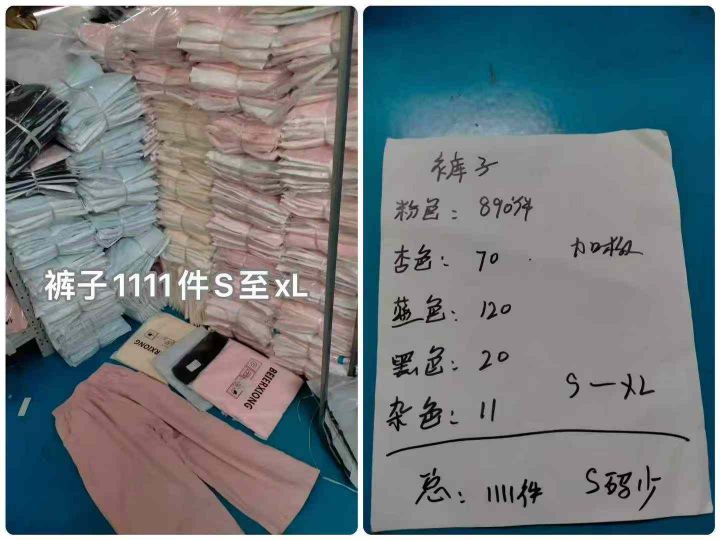 裤子1111件S至xL
BEIERXIONG
BEIERXIONG
裤子
粉色：890件
杏色：70
加板
蓝色：120
黑色：20
S—XL
杂色：11
总：1111件
S码少